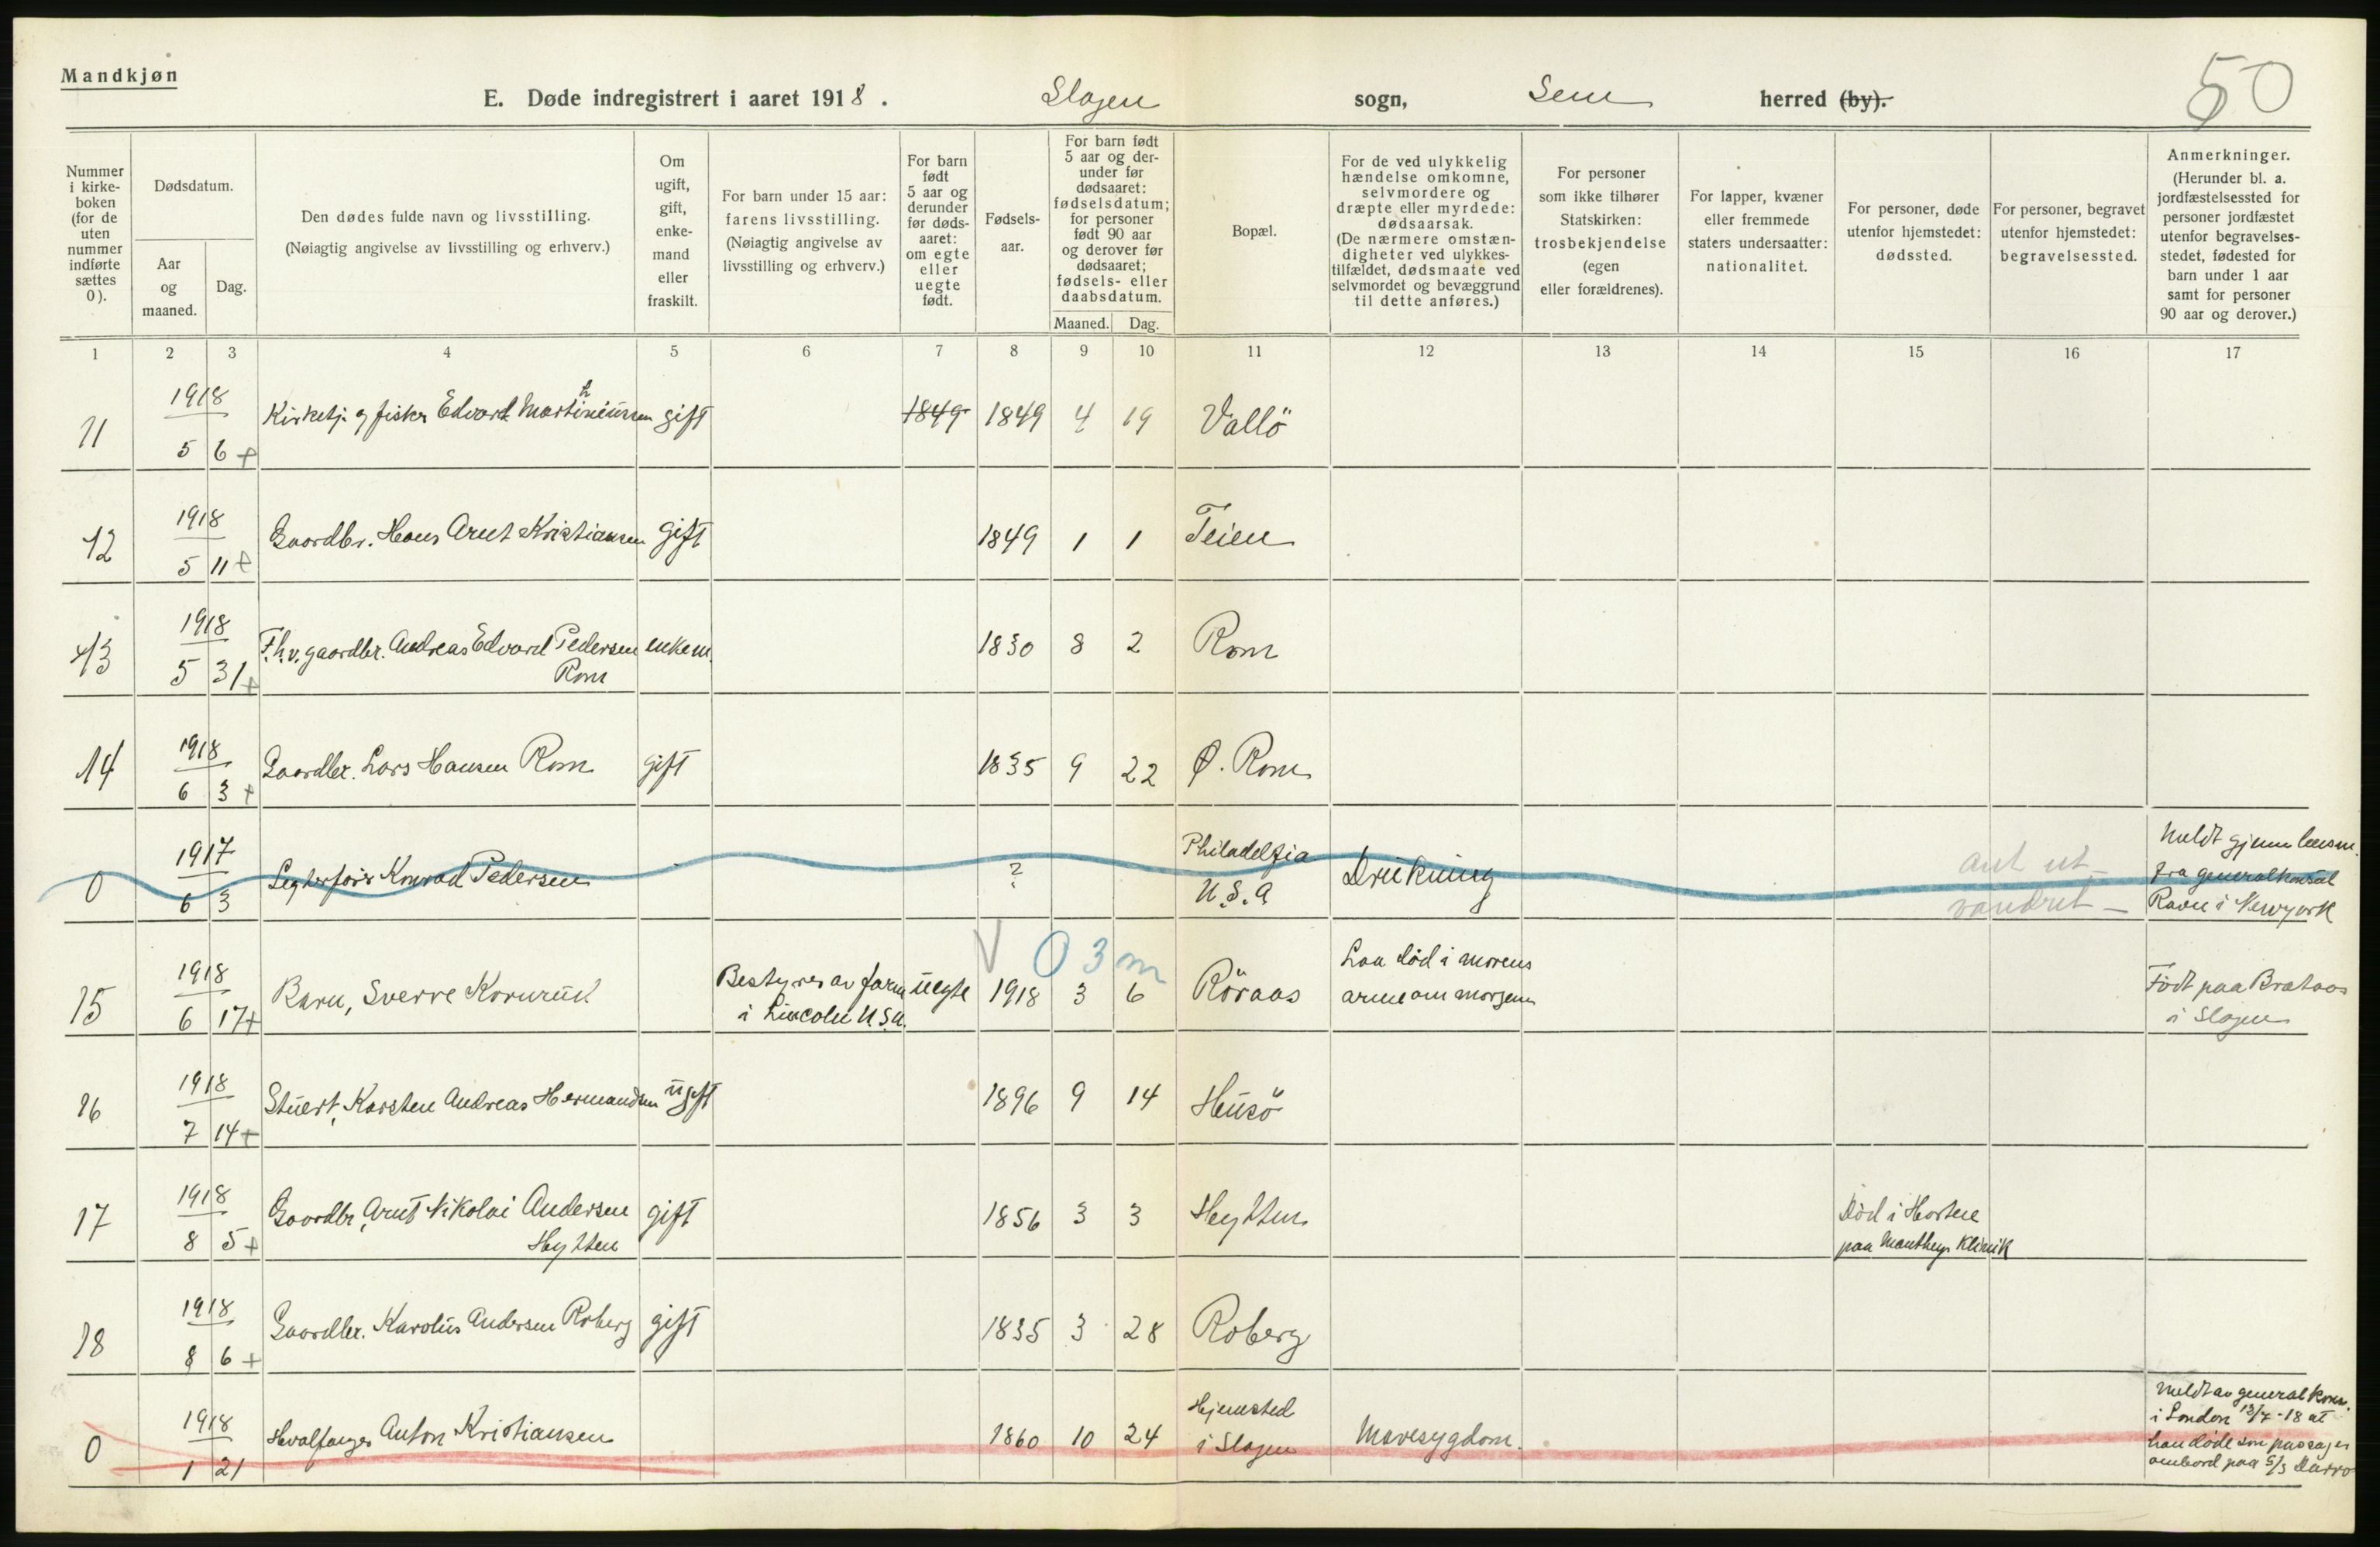 Mandkjøn
50
E. Døde indregistrert i aaret 1918. Slagen sogn, Sem herred (by).
Nummer i kirke-boken (for de uten nummer indførte sættes 0).
Dødsdatum.
Aar og maaned.
Dag.
Den dødes fulde navn og livsstilling.
(Nøiagtig angivelse av livsstilling og erhverv.)
Om ugift, gift, enke-mand eller fraskilt.
For barn under 15 aar: farens livsstilling.
(Nøiagtig angivelse av livsstilling og erhverv.)
For barn født 5 aar og derunder før døds-aaret: om egte eller uegte født.
Fødsels-aar.
For barn født 5 aar og der-under før dødsaaret: fødselsdatum; for personer født 90 aar og derover før dødsaaret; fødsels- eller daabsdatum.
Maaned. Dag.
Bopæl.
For de ved ulykkelig hændelse omkomne, selvmordere og dræpte eller myrdede: dødsaarsak.
(De nærmere omstæn-digheter ved ulykkes-tilfældet, dødsmaate ved selvmordet og bevæggrund til dette anføres.)
For personer som ikke tilhører Statskirken: trosbekjendelse (egen eller forældrenes).
For lapper, kvæner eller fremmede staters undersaatter: nationalitet.
For personer, døde utenfor hjemstedet: dødssted.
For personer, begravet utenfor hjemstedet: begravelsessted.
Anmerkninger.
(Herunder bl. a. jordfæstelsessted for personer jordfæstet utenfor begravelses-stedet, fødested for barn under 1 aar samt for personer 90 aar og derover.)
1 2 3 4 5 6 7 8 9 10 11 12 13 14 15 16 17
11 1918 5 6 + Kirketj. og fisker Edvard Marthiniussen gift 1849 1849 4 19 Vallö
12 1918 5 11 + Gaardbr. Hans Arnt Kristiansen gift 1849 1 1 Teien
13 1918 5 31 + F.h.v. gaardbr. Andreas Edvard Pedersen Rom enkem. 1830 8 2 Rom
14 1918 6 3 + Gaardbr. Lars Hansen Rom gift 1835 9 22 Ø. Rom
0 1917 6 3 Konrad Pedersen ? Philadelfia U.S.A. Drukning ant ut-vandret - Meldt gjenn lensm. fra generalkonsul Ravn i Newyork
V 0 3 m
15 1918 6 17 + Barn, Sverre Kornrud Bestyrer av farm i Lincoln U.S.A. uegte 1918 3 6 Röraas Laa död i morens arme om morgenen Födt paa Brataas i Slagen
16 1918 7 14 + Stuert, Karsten Andreas Hermandsen ugift 1896 9 14 Husö
17 1918 8 5 + Gaardbr, Arnt Nikolai Andersen Hytten gift 1856 3 3 Hytten Död i Horten paa Mantheys Klinik
18 1918 8 6 + Gaardbr. Karolus Andersen Roberg gift 1835 3 28 Roberg
0 1918 1 21 Hvalfanger Anton Kristiansen 1860 10 24 Hjemsted i Slagen Mavesygdom. Meldt av general kons. i London 13/7-18 at han döde som passager ombord paa S/S Darro